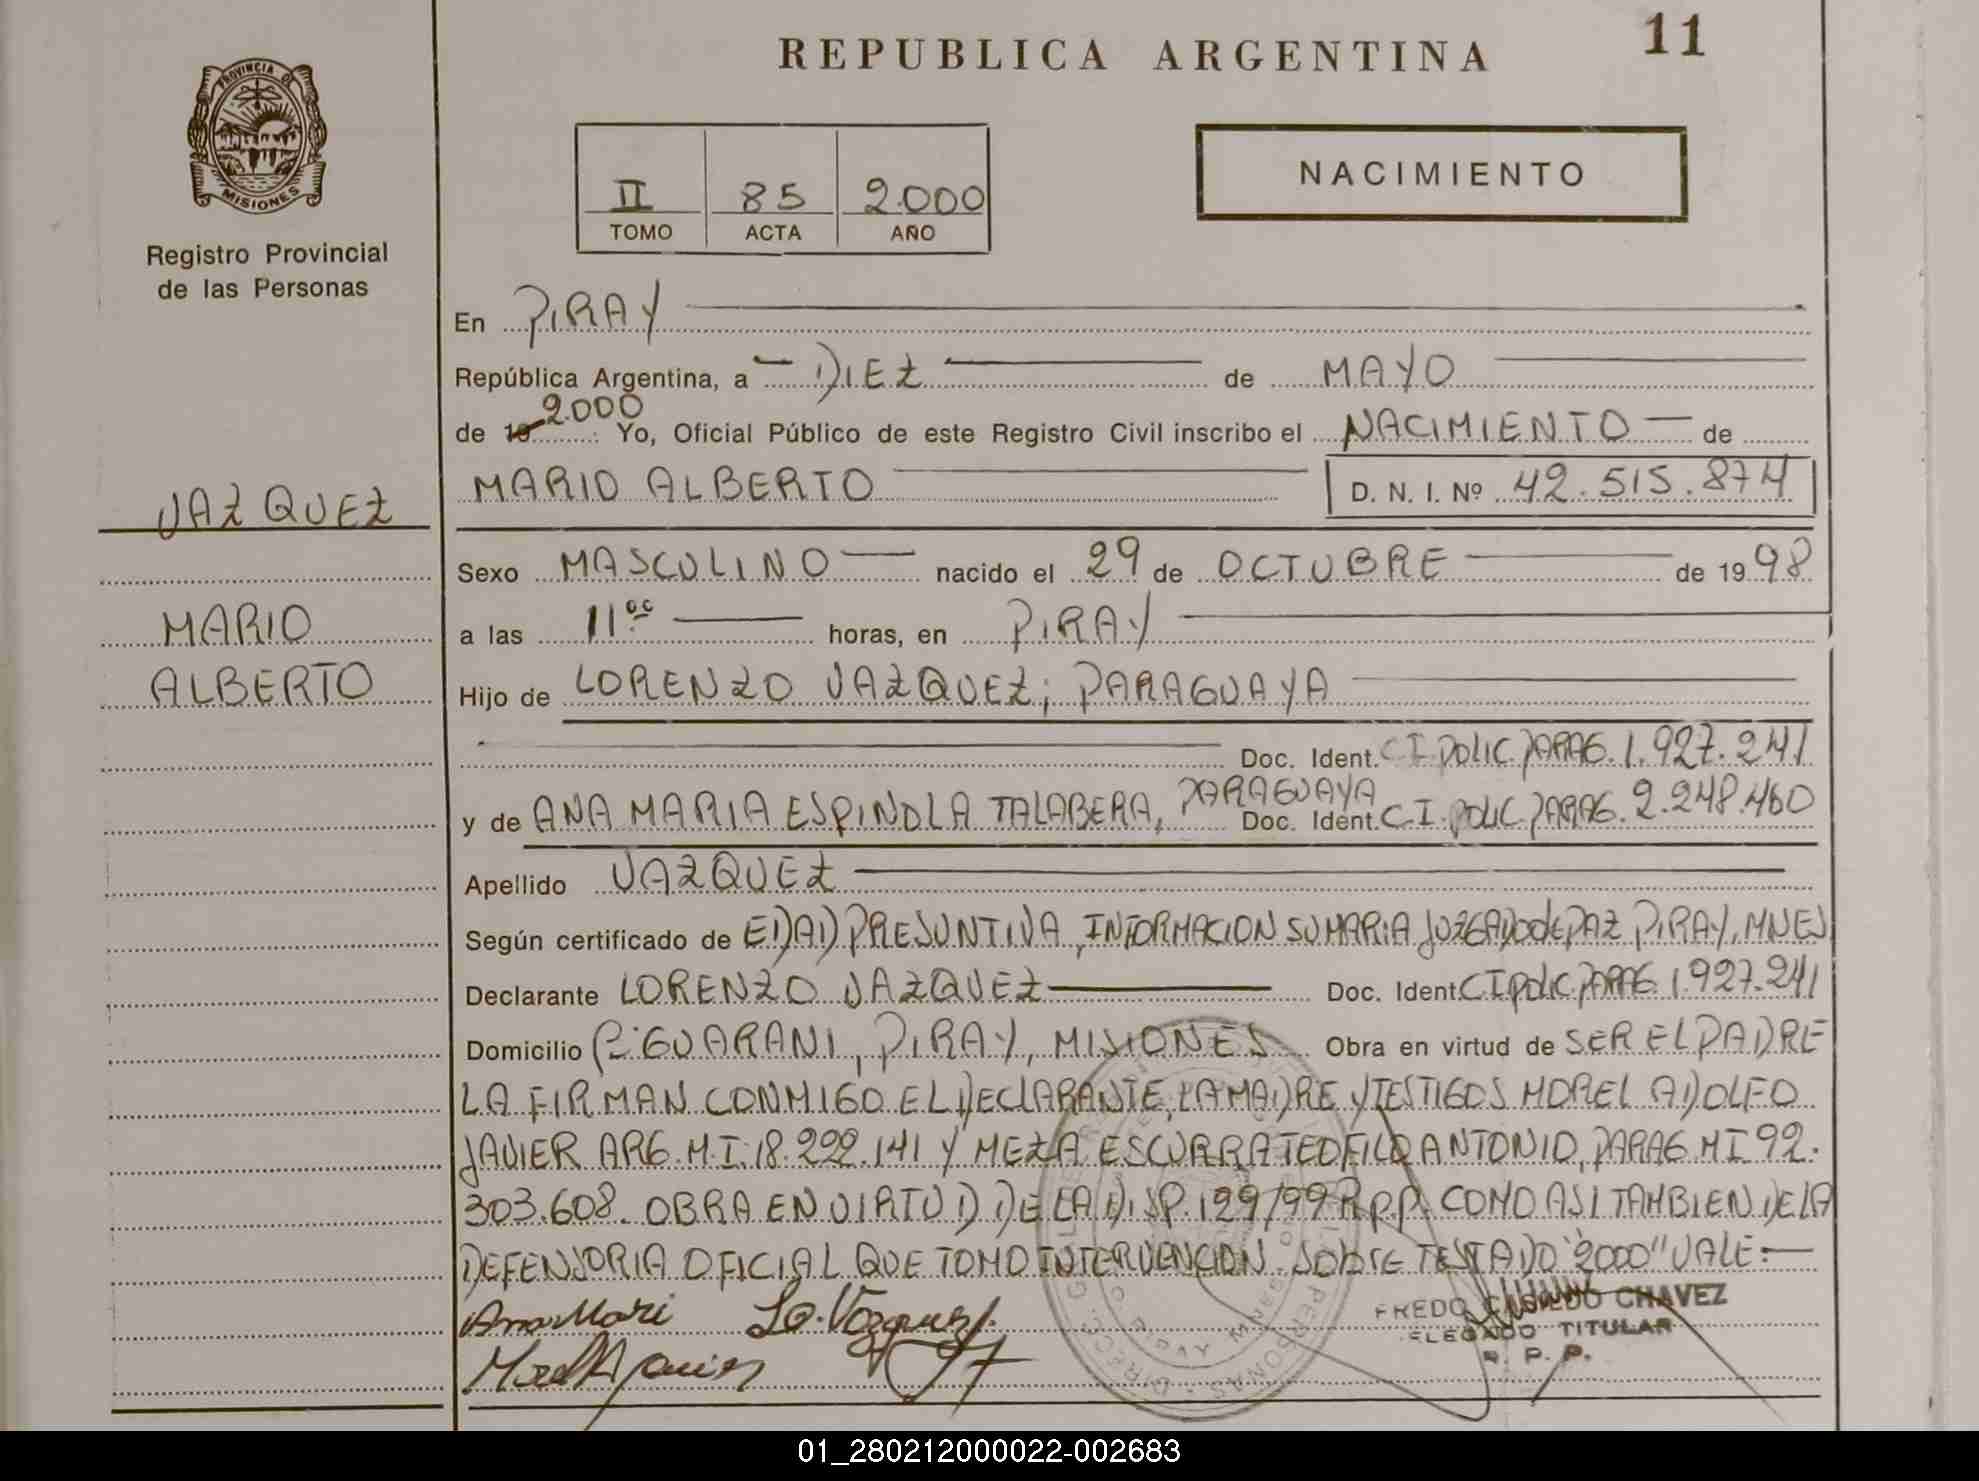 REPUBLICA ARGENTINA
11
PROVINCIA DE
MISIONES
Registro Provincial
de las Personas
II 85 2.000
TOMO ACTA AÑO
NACIMIENTO
En PIRAY
República Argentina, a DIEZ de MAYO
de 19 2.000 Yo, Oficial Público de este Registro Civil inscribo el NACIMIENTO de
MARIO ALBERTO D. N. I. Nº 42.515.874
VAZQUEZ
MARIO
ALBERTO
Sexo MASCULINO nacido el 29 de OCTUBRE de 1998
a las 11 oo horas, en PIRAY
Hijo de LORENZO VAZQUEZ; PARAGUAYA
Doc. Ident. C I POLIC. PARAG. 1.927.241
y de ANA MARIA ESPINOLA TALABERA, PARAGUAYA Doc. Ident. C.I. POLIC. PARAG. 2.248.460
Apellido VAZQUEZ
Según certificado de EDAD PRESUNTIVA, INFORMACION SUMARIA JUZGADO de PAZ PIRAY, MNES
Declarante LORENZO VAZQUEZ Doc. Ident. C I POLIC. PARAG 1.927.241
Domicilio Pº GUARANI, PIRAY, MISIONES Obra en virtud de SER EL PADRE
LA FIRMAN CONMIGO EL DECLARANTE, LA MADRE Y TESTIGOS MOREL ADOLFO
JAVIER ARG. M.I. 18.222.141 Y MEZA ESCURRA TEOFILO ANTONIO, PARAG. M I 92.
303.608. OBRA EN VIRTUD DE LA DISP. 129/99 R.P.P. COMO ASI TAMBIEN DE LA
DEFENSORIA OFICIAL QUE TOMO INTERVENCION. SOBRE TESTADO "2000" VALE:
Ana Mari Lo. Vazquez
Morel Javier
FREDO CHAVEZ
DELEGADO TITULAR
R. P. P.
01_280212000022-002683